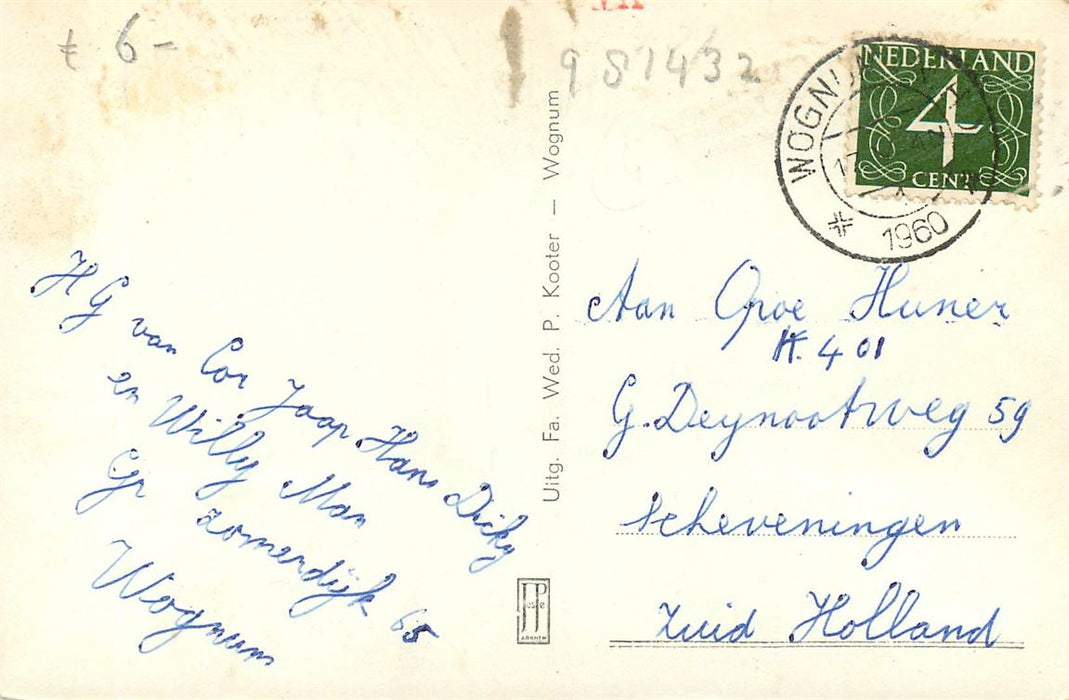 6-
981432
NEDERLAND
4
CENT
WOGNUM
1960
H G van Cor Jaap Hans Dicky
en Willy Man
Gr zomerdijk 65
Wognum
Uitg. Fa. Wed. P. Kooter — Wognum
JP
ARNHEM
Aan Opoe Huner
K. 401
G. Deynootweg 59
Scheveningen
Zuid Holland